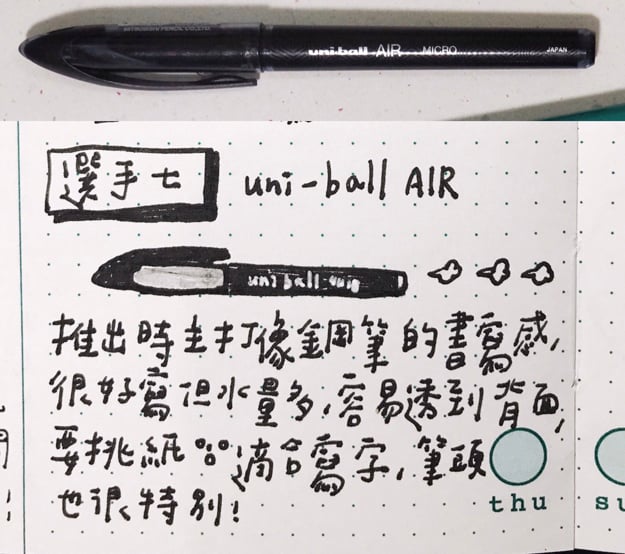 MITSUBISHI PENCIL CO.,LTD.
uni-ball AIR MICRO JAPAN
選手七 uni-ball AIR
uni ball
推出時主打像鋼筆的書寫感,
很好寫但水量多,容易透到背面,
要挑紙。適合寫字,筆頭
thu su
也很特別!